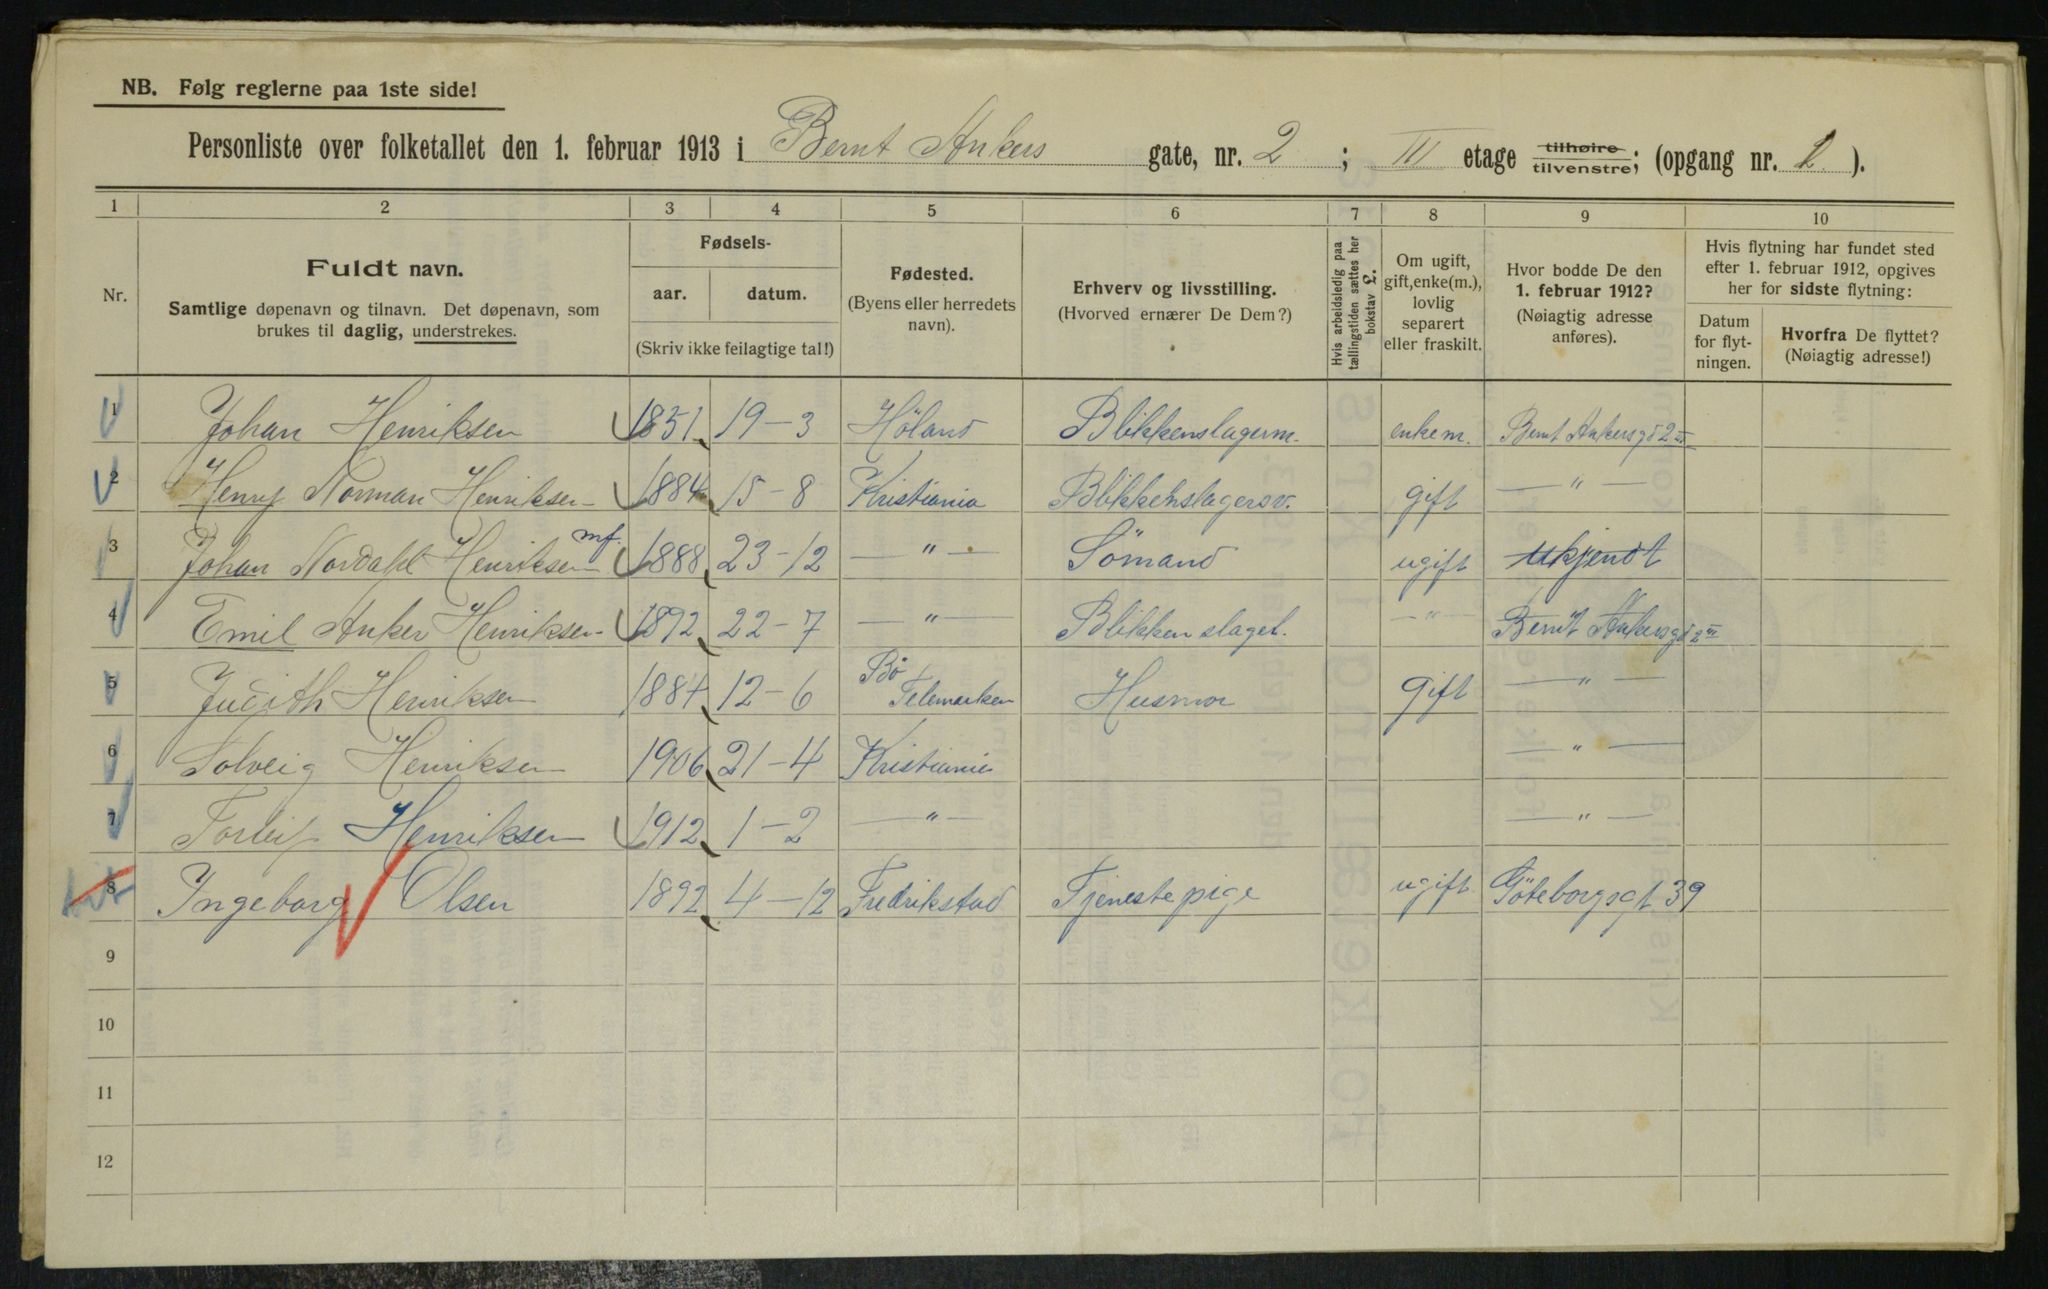 NB. Følg reglerne paa 1ste side!
Personliste over folketallet den 1. februar 1913 i Bernt Ankers gate, nr. 2 ; III etage tilhøire tilvenstre; (opgang nr. 1 ).
1 2 3 4 5 6 7 8 9 10
Nr.
Fuldt navn.
Samtlige døpenavn og tilnavn. Det døpenavn, som
brukes til daglig, understrekes.
Fødsels-
aar. datum.
(Skriv ikke feilagtige tal!)
Fødested.
(Byens eller herredets
navn).
Erhverv og livsstilling.
(Hvorved ernærer De Dem?)
Hvis arbeidsledig paa
tællingstiden sættes her
bokstav L.
Om ugift,
gift, enke(m.),
lovlig
separert
eller fraskilt.
Hvor bodde De den
1. februar 1912?
(Nøiagtig adresse
anføres).
Hvis flytning har fundet sted
efter 1. februar 1912, opgives
her for sidste flytning:
Datum
for flyt-
ningen.
Hvorfra De flyttet?
(Nøiagtig adresse!)
1 Johan Henriksen 1851 19-3 Höland Blikkenslagerm. enkem. Bernt Ankersgd 2 III
2 Henry Norman Henriksen 1884 15-8 Kristiania Blikkenslagersv. gift — " —
3 Johan Nordahl Henriksen mf. 1888 23-12 — " — Sömand ugift ukjendt
4 Emil Anker Henriksen 1892 22-7 — " — Blikkenslagel. — " — Bernt Ankersgd 2 III
5 Judith Henriksen 1884 12-6 Bö Telemarken Husmor gift — " —
6 Solveig Henriksen 1906 21-4 Kristiania — " —
7 Torleif Henriksen 1912 1-2 — " — — " —
8 Ingeborg Olsen 1892 4-12 Fredrikstad Tjenestepige ugift Göteborggt 39
9
10
11
12